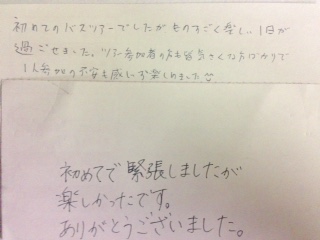 初めてのバスツアーでしたがものすごく楽しい1日が
過ごせました。ツアー参加者の方も皆気さくな方ばかりで
1人参加の不安も感じず楽しめました☺
初めてで緊張しましたが
楽しかったです。
ありがとうございました。